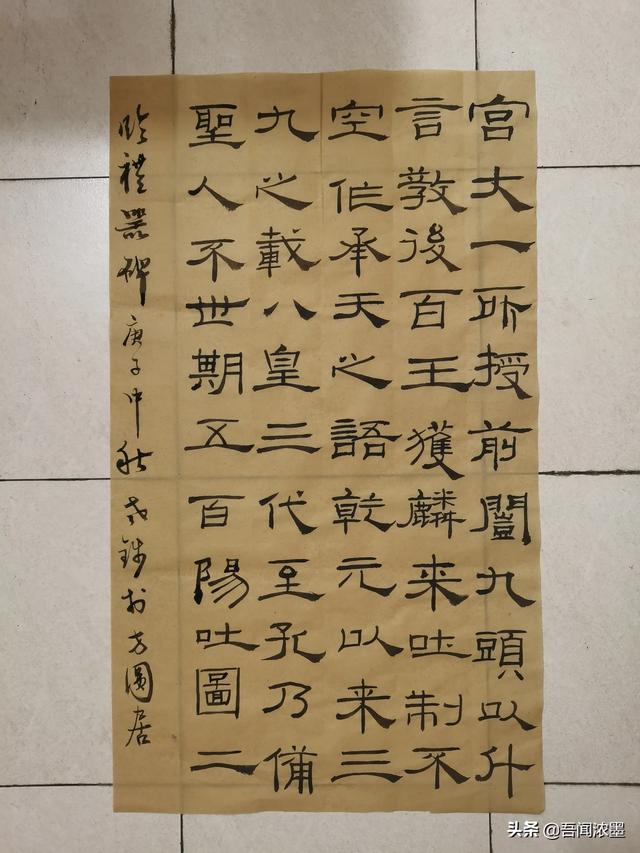 宮大一所授前闓九頭以什
言教後百王獲麟来吐制不
空作承天之語乾元以来三
九之載八皇三代至孔乃備
聖人不世期五百陽吐圖二
臨禮器碑庚子中秋於方圓居
头条 @吾闻浓墨